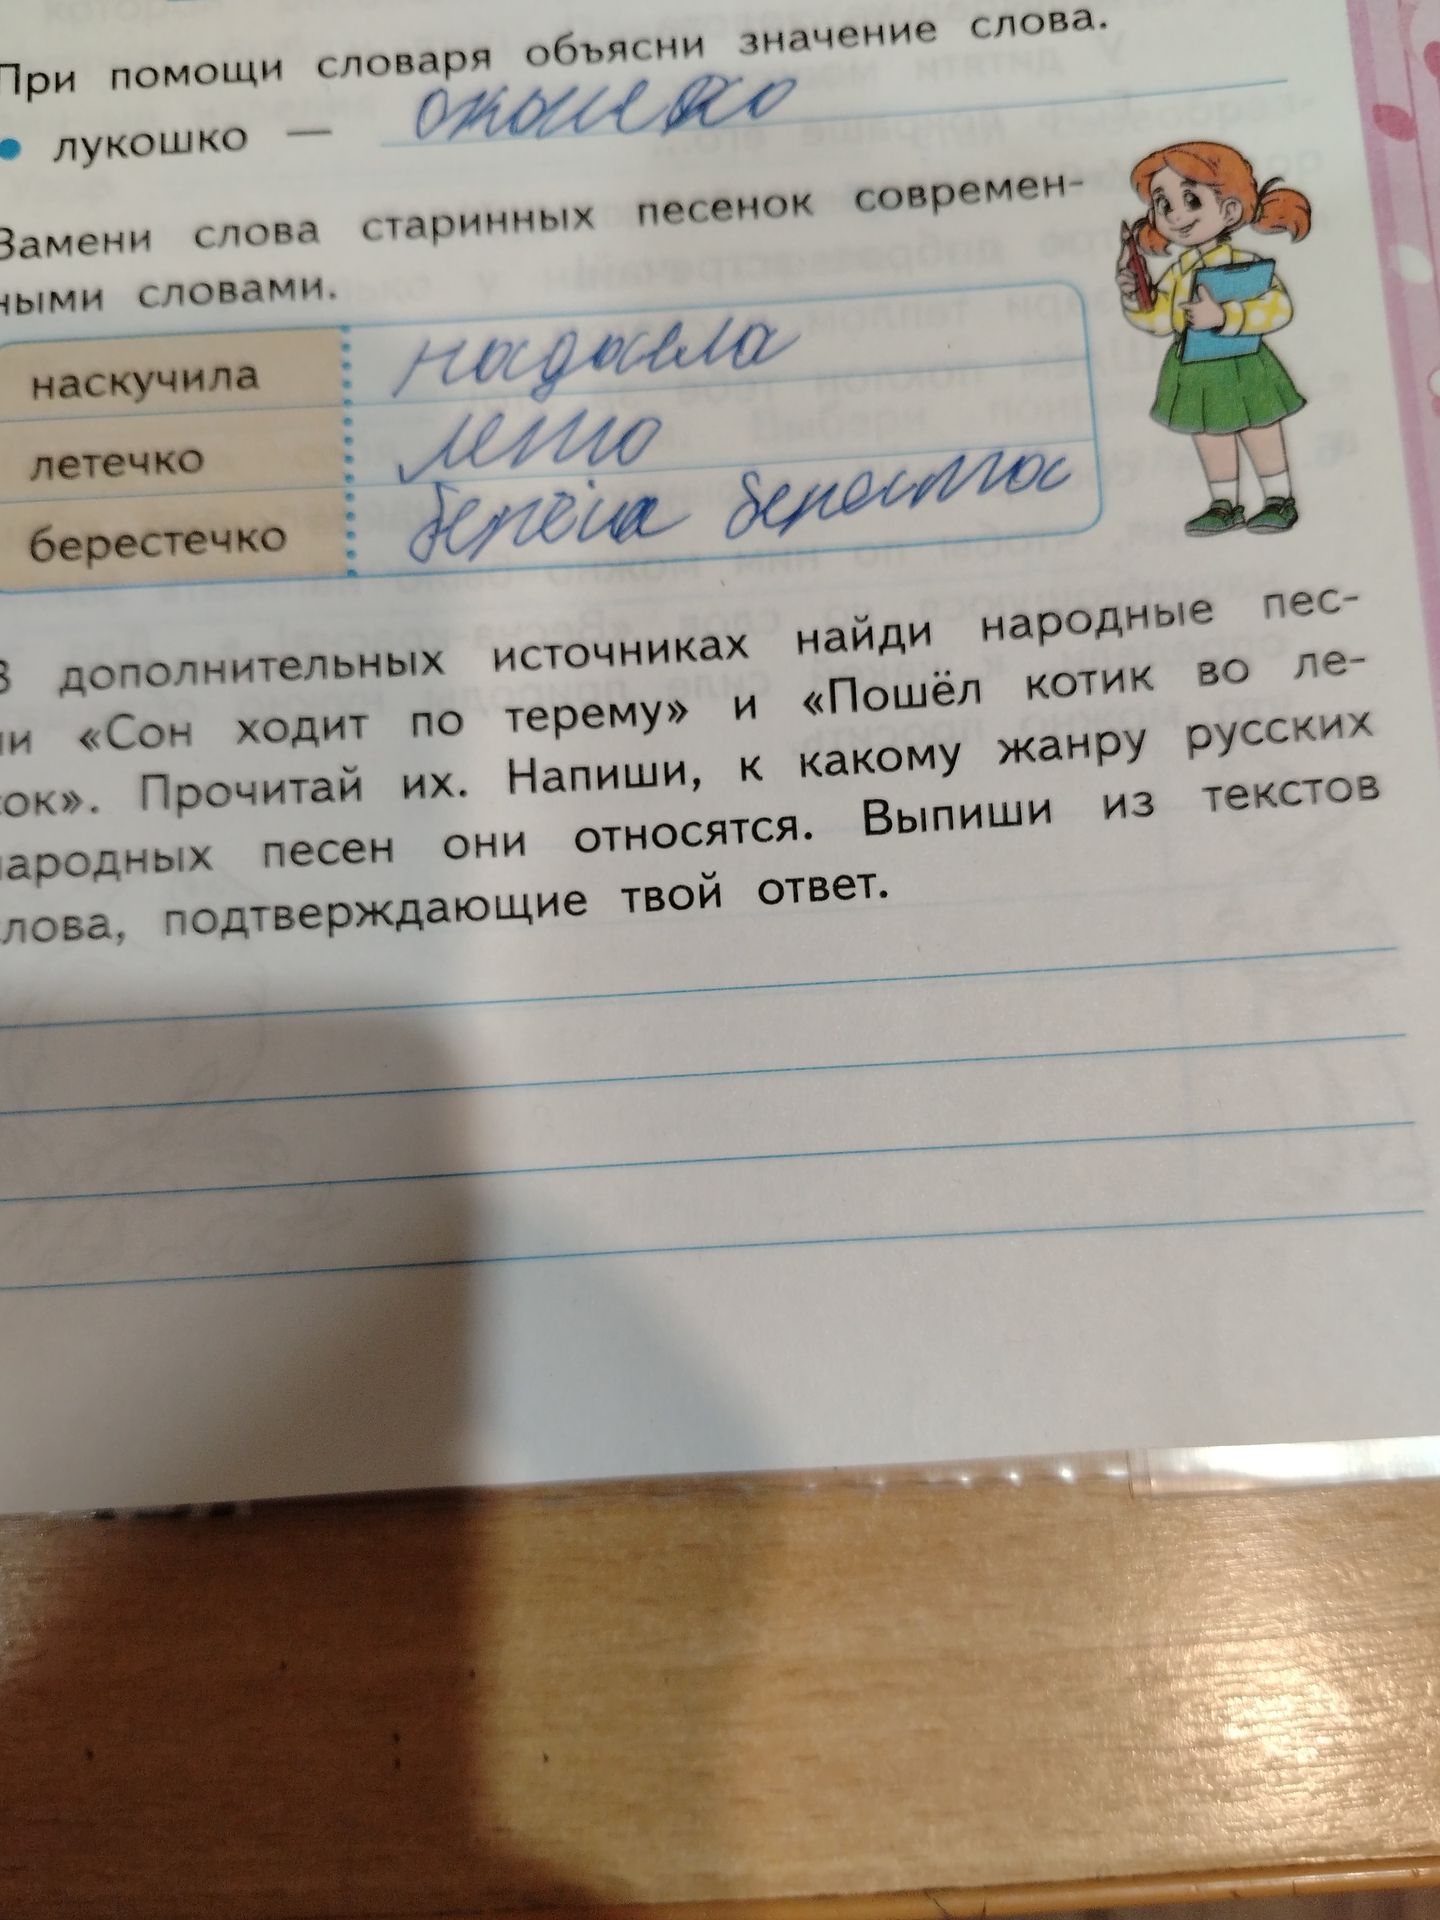 При помощи словаря объясни значение слова.
• лукошко — окошеко
Замени слова старинных песенок современ-
ными словами.
наскучила надоела
летечко лето
берестечко берёза береста
В дополнительных источниках найди народные пес-
ни «Сон ходит по терему» и «Пошёл котик во ле-
сок». Прочитай их. Напиши, к какому жанру русских
народных песен они относятся. Выпиши из текстов
слова, подтверждающие твой ответ.